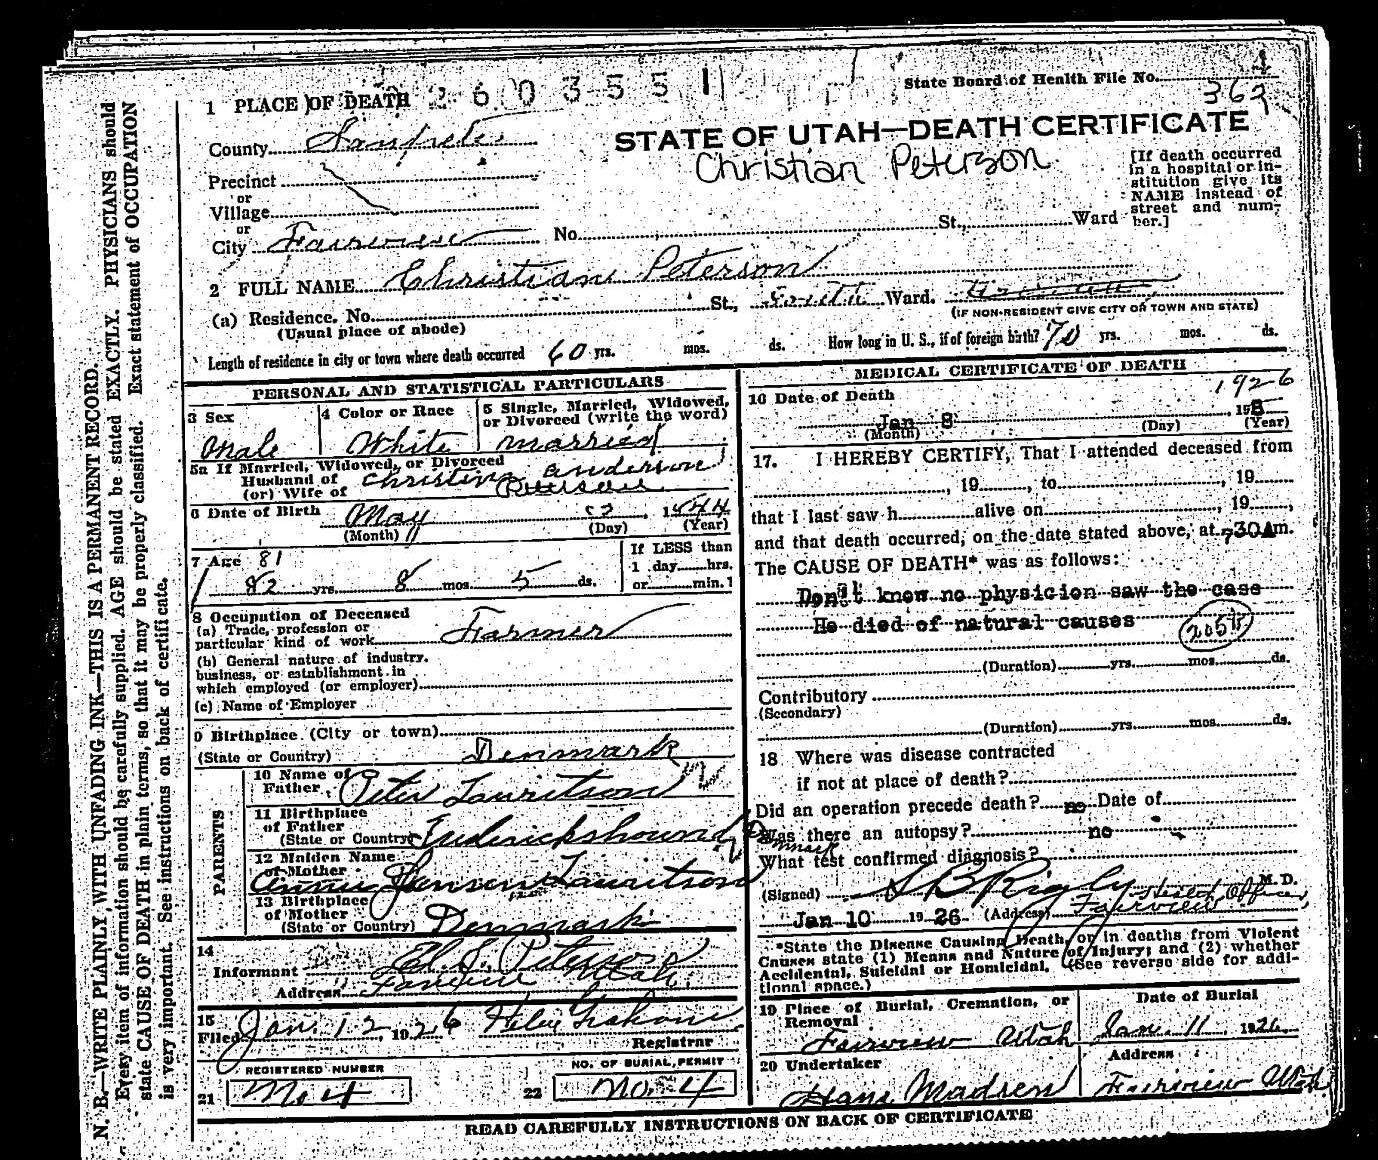 260355 1
State Board of Health File No. 4
369
1 PLACE OF DEATH
STATE OF UTAH—DEATH CERTIFICATE
Christian Peterson
County Sanpete
Precinct
or
Village
or
City Fairview No. St., Ward
[If death occurred
in a hospital or in-
stitution give its
NAME instead of
street and num-
ber.]
2 FULL NAME Christian Peterson
(a) Residence. No. St., South Ward.
(Usual place of abode)
(IF NON-RESIDENT GIVE CITY OR TOWN AND STATE)
Length of residence in city or town where death occurred 60 yrs. mos. ds. How long in U. S., if of foreign birth? 70 yrs. mos. ds.
PERSONAL AND STATISTICAL PARTICULARS
3 Sex
Male
4 Color or Race
White
5 Single, Married, Widowed,
or Divorced (write the word)
married
5a If Married, Widowed, or Divorced
Husband of
(or) Wife of
Christin Anderson
Peterson
6 Date of Birth
May 1844
(Month) (Day) (Year)
7 Age 81
82 yrs. 8 mos. 5 ds.
If LESS than
1 day hrs.
or min.
8 Occupation of Deceased
(a) Trade, profession or
particular kind of work Farmer
(b) General nature of industry,
business, or establishment in
which employed (or employer)
(c) Name of Employer
9 Birthplace (City or town)
(State or Country) Denmark
PARENTS
10 Name of
Father Peter Lauritson
11 Birthplace
of Father
(State or Country) Denmark
12 Maiden Name
of Mother
Annie Jensen Lauritson
13 Birthplace
of Mother
(State or Country) Denmark
14
Informant El. S. Peterson
Address Fairview Utah
15
Filed Jan. 12, 1926
Registrar
REGISTERED NUMBER
21 No 4
NO. OF BURIAL PERMIT
22 No. 4
MEDICAL CERTIFICATE OF DEATH
16 Date of Death 1926
Jan 8 , 19
(Month) (Day) (Year)
17. I HEREBY CERTIFY, That I attended deceased from
, 19 , to , 19
that I last saw h alive on , 19 ,
and that death occurred, on the date stated above, at 730A m.
The CAUSE OF DEATH* was as follows:
Don't know no physician saw the case
He died of natural causes
205
(Duration) yrs. mos. ds.
Contributory
(Secondary)
(Duration) yrs. mos. ds.
18 Where was disease contracted
if not at place of death?
Did an operation precede death? no Date of
Was there an autopsy? no
What test confirmed diagnosis?
(Signed) S B Rigby M. D.
Jan 10 1926 (Address) Fairview
*State the Disease Causing Death, or in deaths from Violent
Causes state (1) Means and Nature of Injury; and (2) whether
Accidental, Suicidal or Homicidal. (See reverse side for addi-
tional space.)
19 Place of Burial, Cremation, or
Removal
Fairview Utah
Date of Burial
Jan. 11 1926
20 Undertaker
Hans Madsen
Address
Fairview Utah
READ CAREFULLY INSTRUCTIONS ON BACK OF CERTIFICATE
N. B.—WRITE PLAINLY WITH UNFADING INK—THIS IS A PERMANENT RECORD.
Every item of information should be carefully supplied. AGE should be stated EXACTLY. PHYSICIANS should
state CAUSE OF DEATH in plain terms, so that it may be properly classified. Exact statement of OCCUPATION
is very important. See instructions on back of certificate.